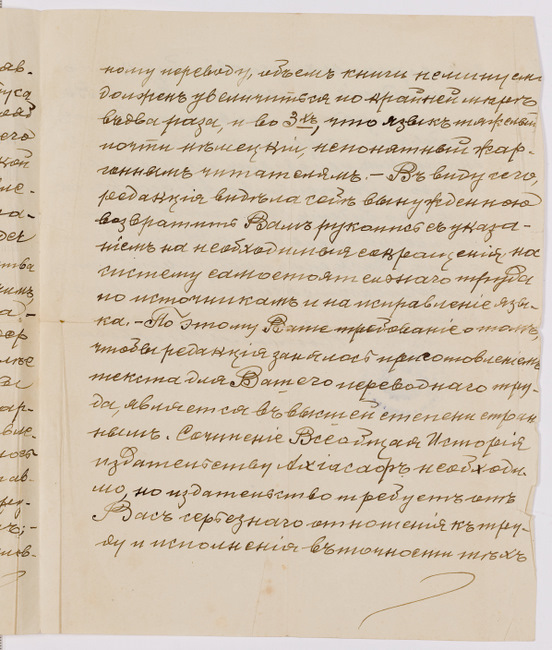 ному переводу, объемъ книги неминуемо
долженъ увеличиться по крайней мѣрѣ
въ два раза, и во 3хъ, что языкъ тяжелый
почти нѣмецкій, непонятный жар-
гоннымъ читателямъ. – Въ виду сего,
редакція видѣла себя вынужденною
возвратить Вамъ рукопись съ указа-
ніемъ на необходимыя сокращенія, на
систему самостоятельнаго труда
по источникамъ и на исправленіе язы-
ка. – По этому Ваше требованіе о томъ,
чтобы редакція занялась приготовленіемъ
текста для Вашего переводнаго тру-
да, является въ высшей степени стран-
нымъ. Сочиненіе Всеобщая Исторія
издательству Ахіасафъ необходи-
мо, но издательство требуетъ отъ
Васъ серьезнаго отношенія къ тру-
ду и исполненія въ точности тѣхъ